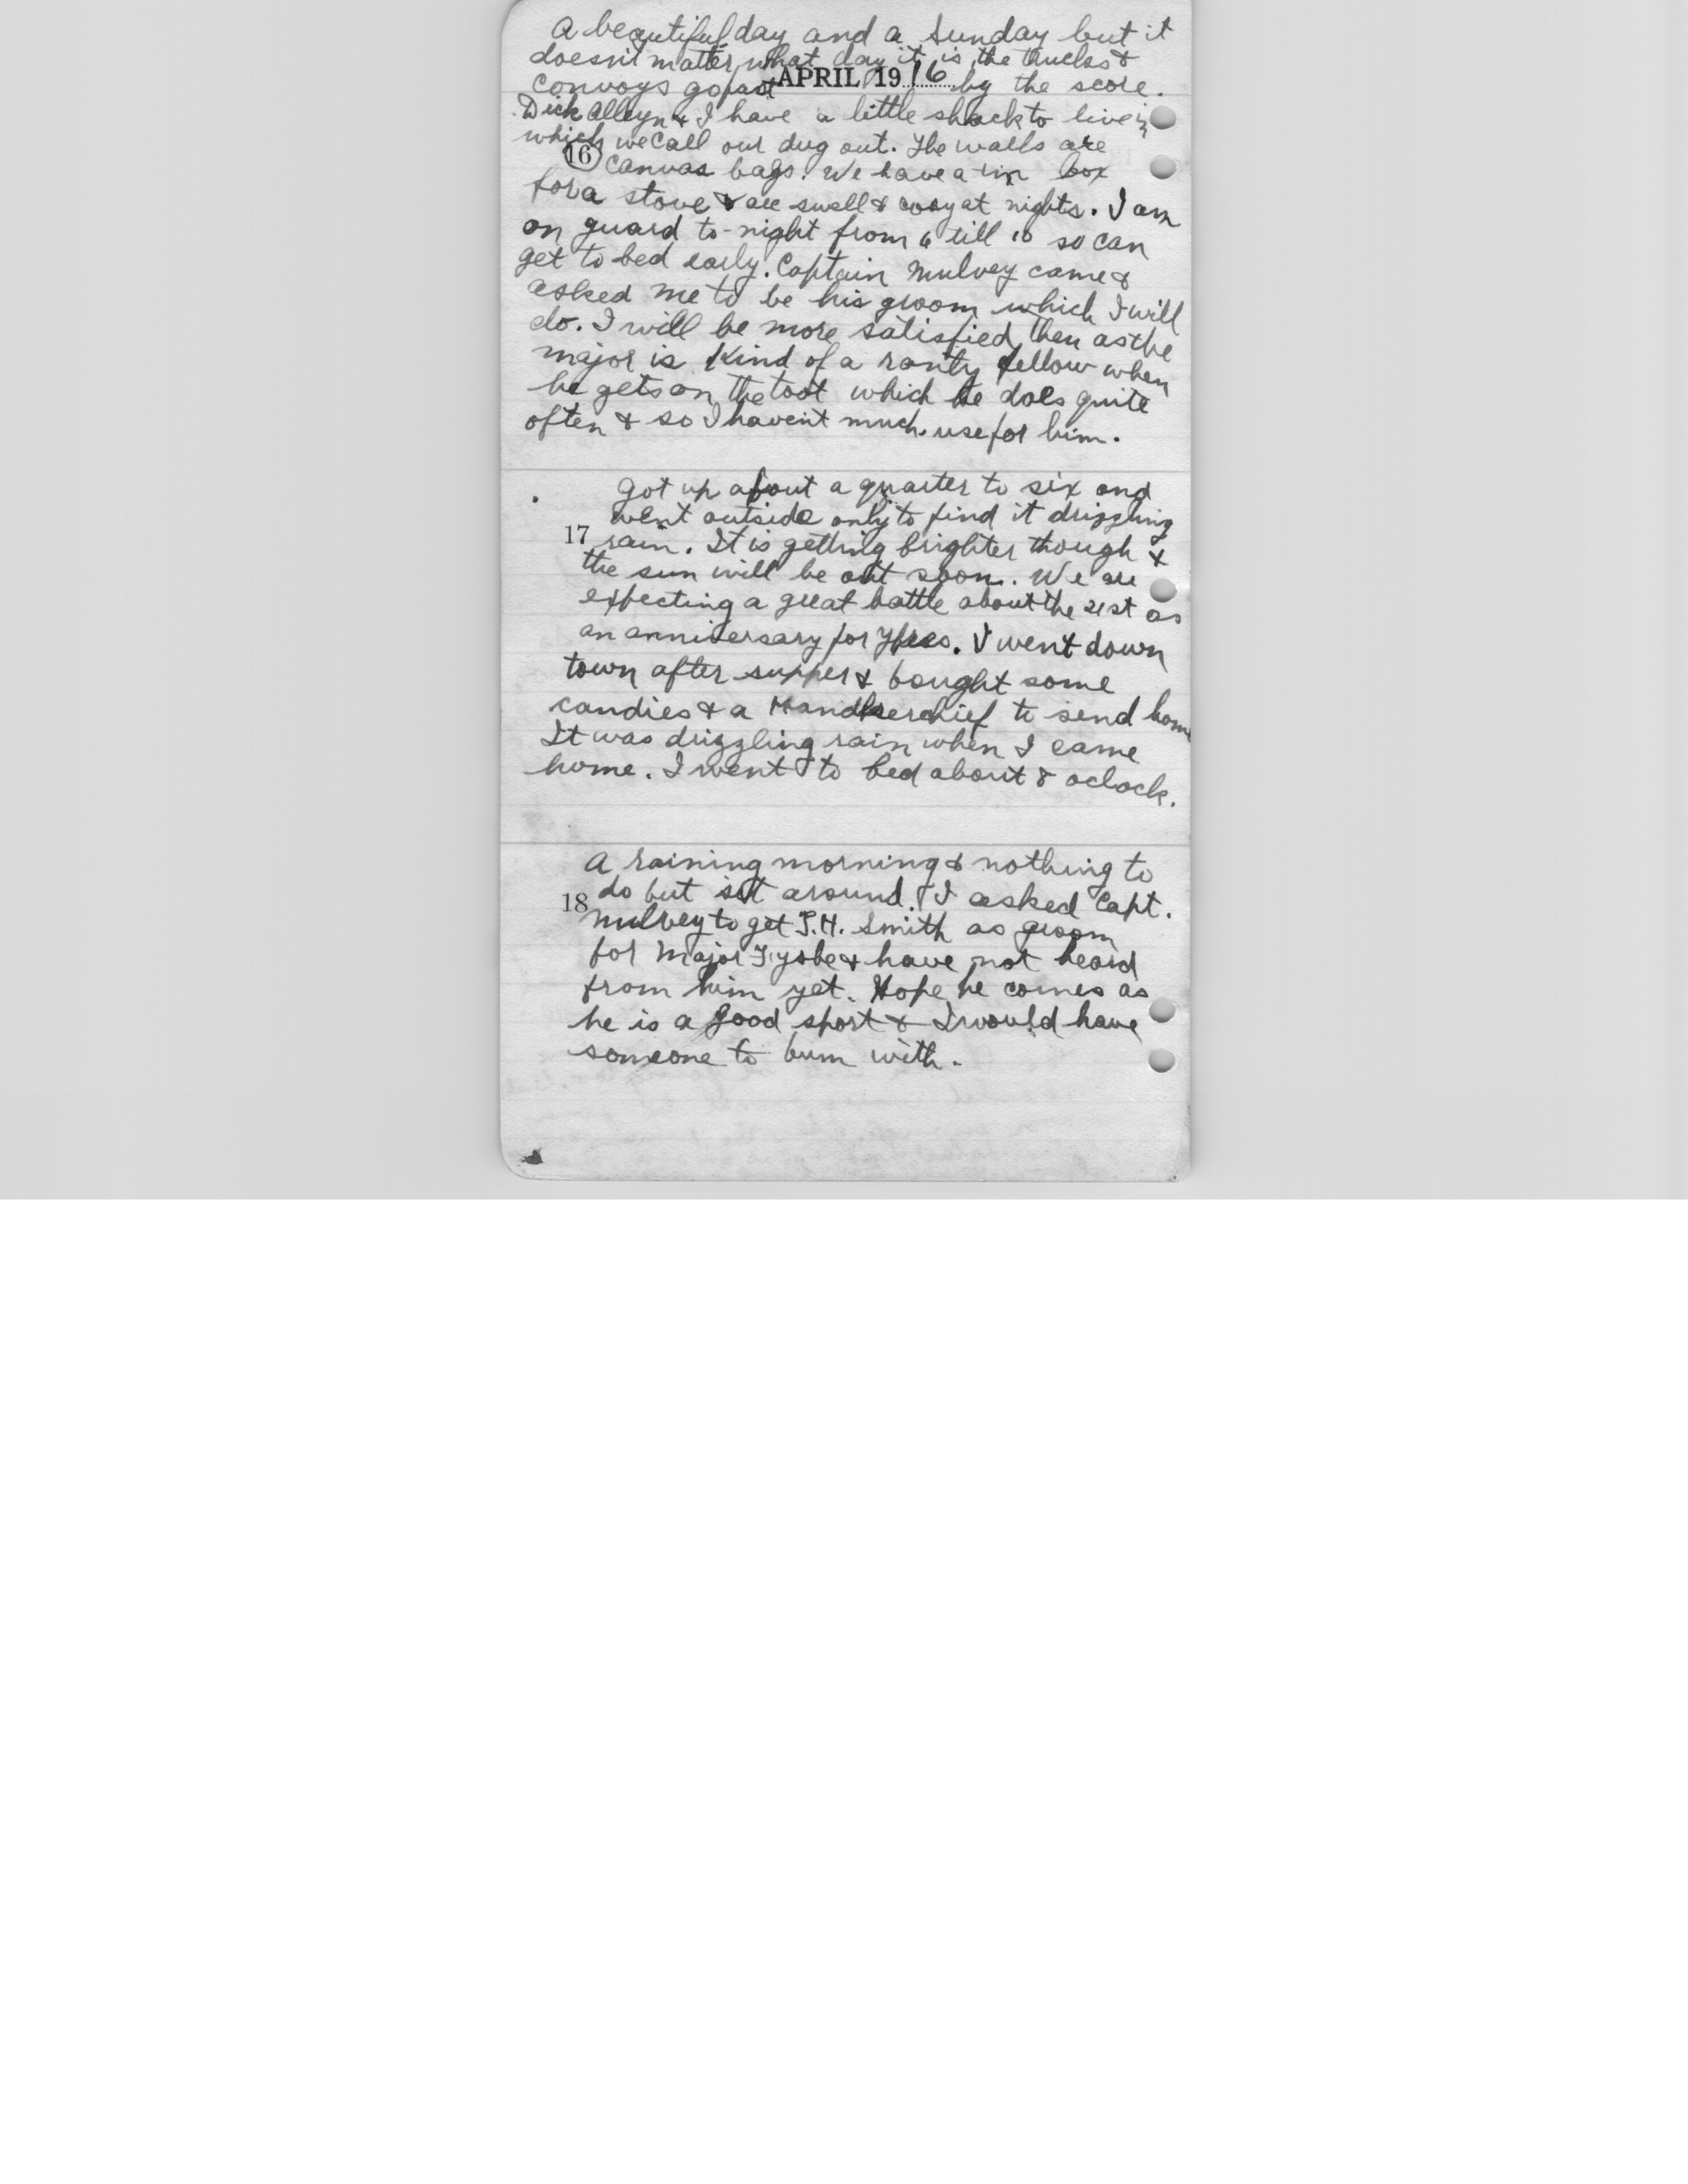 A beautiful day and a Sunday but it
doesn't matter what day it is the trucks &
convoys go past APRIL 1916 by the score.
Dick Alleyn & I have a little shack to live in
which we call our dug out. The walls are
16 canvas bags. We have a tin box
for a stove & are swell & cosy at nights. I am
on guard to-night from 6 till 10 so can
get to bed early. Captain Mulvey came &
asked me to be his groom which I will
do. I will be more satisfied then as the
major is kind of a ranty fellow when
he gets on the toot which he does quite
often & so I havent much use for him.
Got up about a quarter to six and
went outside only to find it drizzling
17 rain. It is getting brighter though &
the sun will be out soon. We are
expecting a great battle about the 21st as
an anniversary for Ypres. I went down
town after supper & bought some
candies & a Handkerchief to send home
It was drizzling rain when I came
home. I went to bed about 8 oclock.
A raining morning & nothing to
18 do but sit around. I asked Capt.
Mulvey to get T.H. Smith as groom
for Major Fyshe & have not heard
from him yet. Hope he comes as
he is a good sport & I would have
someone to bum with.